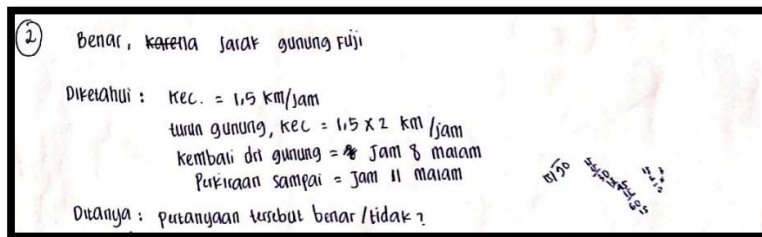 2 Benar, karena Jarak gunung Fuji
Diketahui : Kec. = 1,5 km/jam
turun gunung, kec = 1,5 x 2 km/jam
Kembali dri gunung = Jam 8 malam
Perkiraan sampai = Jam 11 malam
Ditanya : pertanyaan tersebut benar/tidak ?